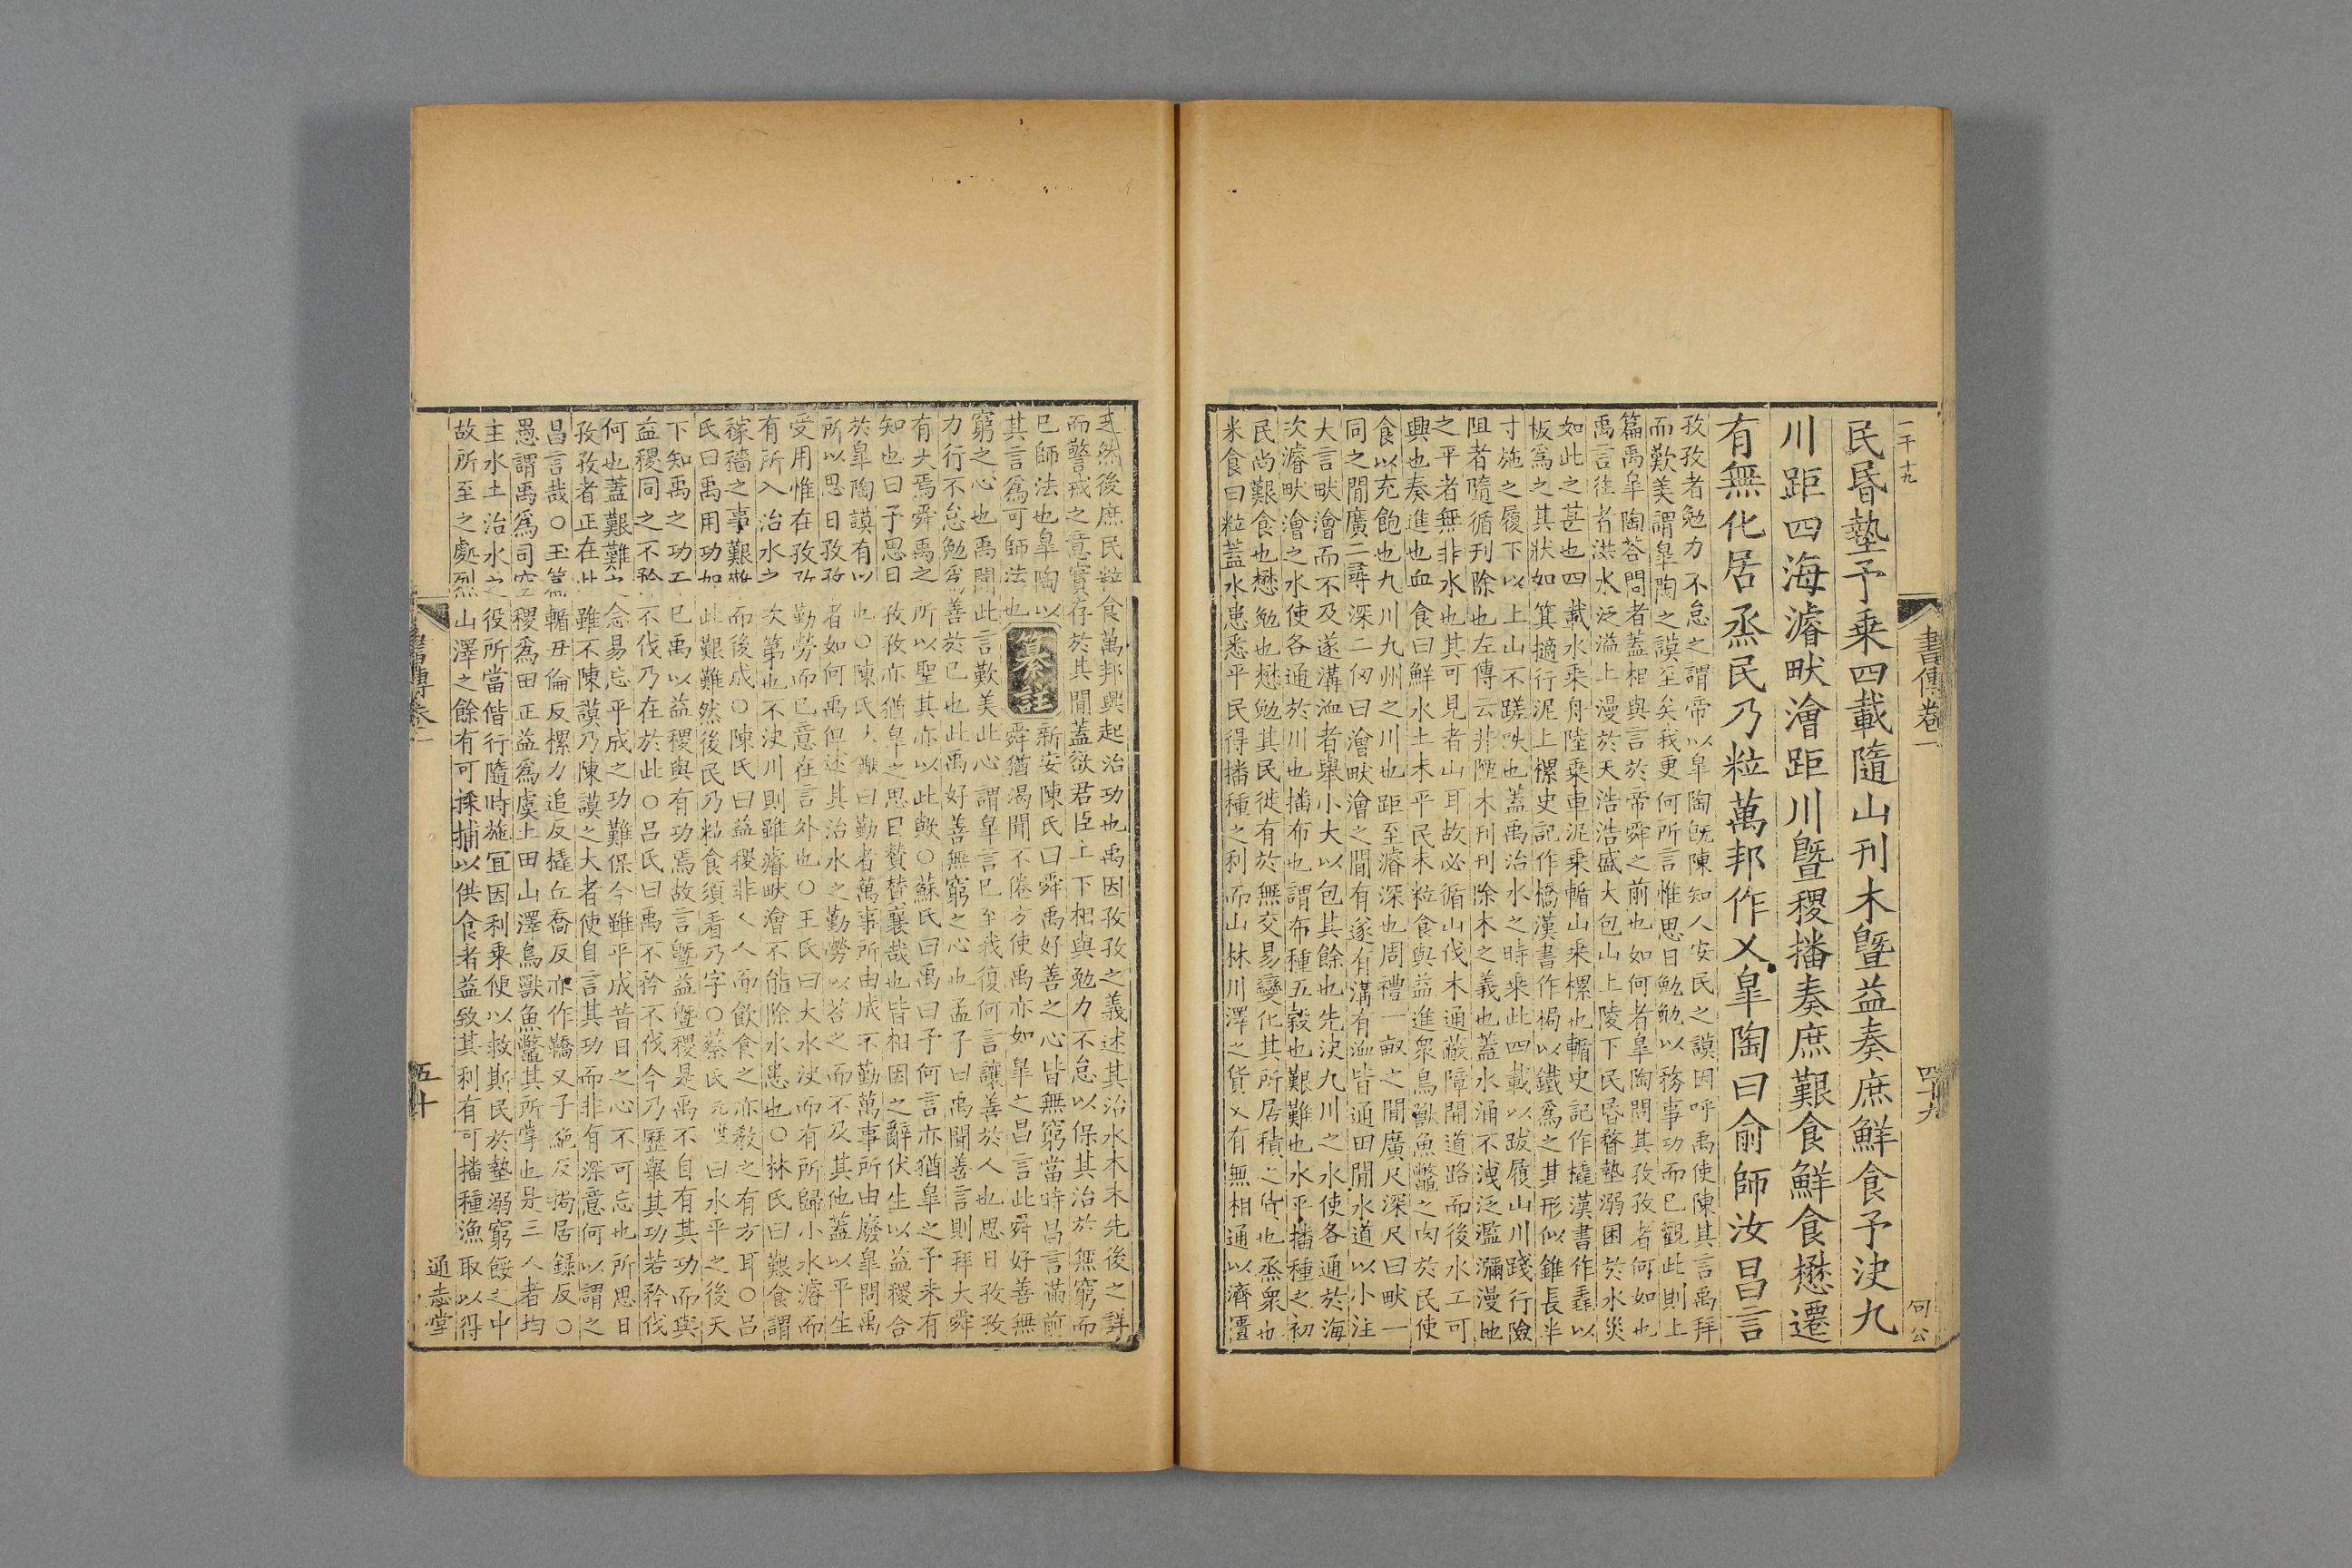 一千十九
書傳卷一
四十九
何公
民昬墊予乗四載隨山刊木曁益奏庶鮮食予決九
川距四海濬畎澮距川曁稷播奏庶艱食鮮食懋遷
有無化居烝民乃粒萬邦作乂皐陶曰俞師汝昌言
孜孜者勉力不怠之謂帝以皐陶旣陳知人安民之謨因呼禹使陳其言禹拜
而歎美謂皐陶之謨至矣我更何所言惟思日勉勉以務事功而已觀此則上
篇禹皐陶荅問者蓋相與言於帝舜之前也如何者皐陶問其孜孜者何如也
禹言往者洪水泛溢上漫於天浩浩盛大包山上陵下民昬瞀墊溺困於水災
如此之甚也四載水乗舟陸乗車泥乗輴山乗樏也輴史記作橇漢書作毳以
板爲之其狀如箕擿行泥上樏史記作橋漢書作梮以鐵爲之其形似錐長半
寸施之履下以上山不蹉跌也蓋禹治水之時乗此四載以跋履山川踐行險
阻者隨循刊除也左傳云井堙木刊刊除木之義也蓋水涌不洩泛濫瀰漫地
之平者無非水也其可見者山耳故必循山伐木通蔽障開道路而後水工可
興也奏進也血食曰鮮水土未平民未粒食與益進衆鳥獸魚鼈之肉於民使
食以充飽也九川九州之川也距至濬深也周禮一畝之間廣尺深尺曰畎一
同之間廣二尋深二仞曰澮畎澮之間有遂有溝有洫皆通田間水道以小注
大言畎澮而不及遂溝洫者舉小大以包其餘也先決九川之水使各通於海
次濬畎澮之水使各通於川也播布也謂布種五穀也艱難也水平播種之初
民尚艱食也懋勉也懋勉其民徙有於無交易變化其所居積之貨也烝衆也
米食曰粒蓋水患悉平民得播種之利而山林川澤之貨又有無相通以濟匱
乏然後庶民粒食萬邦興起治功也禹因孜孜之義述其治水本末先後之詳
而警戒之意實存於其間蓋欲君臣上下相與勉力不怠以保其治於無窮而
已師法也皐陶以
其言爲可師法也 纂註 新安陳氏曰舜禹好善之心皆無窮當時昌言滿前
舜猶渴聞不倦方使禹亦如皐之昌言此舜好善無
窮之心也禹聞此言歎美此心謂皐言已至我復何言讓善於人也思日孜孜
力行不怠勉爲善於已也此禹好善無窮之心也孟子曰禹聞善言則拜大舜
有大焉舜禹之所以聖其亦以此歟○蘇氏曰禹曰予何言亦猶皐之予未有
知也曰予思日孜孜亦猶皐之思曰贊贊襄哉也皆相因之辭伏生以益稷合
於皐陶謨有以也○陳氏大猷曰勤者萬事所由成不勤萬事所由廢皐問禹
所以思日孜孜者如何禹但述其治水之勤勞以荅之而不及其他蓋以平生
受用惟在孜孜勤勞而已意在言外也○王氏曰大水決而有所歸小水濬而
有所入治水之次第也不決川則雖濬畎澮不能除水患也○林氏曰艱食謂
稼穡之事艱難而後成○陳氏曰益稷非人人而飲食之亦教之有方耳○呂
氏曰禹用功如此艱難然後民乃粒食須看乃字○蔡氏元度曰水平之後天
下知禹之功而已禹以益稷與有功焉故言曁益曁稷是禹不自有其功而與
益稷同之不矜不伐乃在於此○呂氏曰禹不矜不伐今乃歷舉其功若矜伐
何也蓋艱難之念易忘平成之功難保今雖平成昔日之心不可忘也所思日
孜孜者正在此雖不陳謨乃陳謨之大者使自言其功而非有深意何以謂之
昌言哉○玉篇輴丑倫反樏力追反橇丘喬反亦作鞽又子絶反梮居錄反○
愚謂禹爲司空稷爲田正益爲虞上田山澤鳥獸魚鼈其所掌也是三人者均
主水土治水之役所當偕行隨時施宜因利乗便以救斯民於墊溺窮餒之中
故所至之處烈山澤之餘有可採捕以供食者益致其利有可播種漁取以得
書傳卷一
五十
通志堂